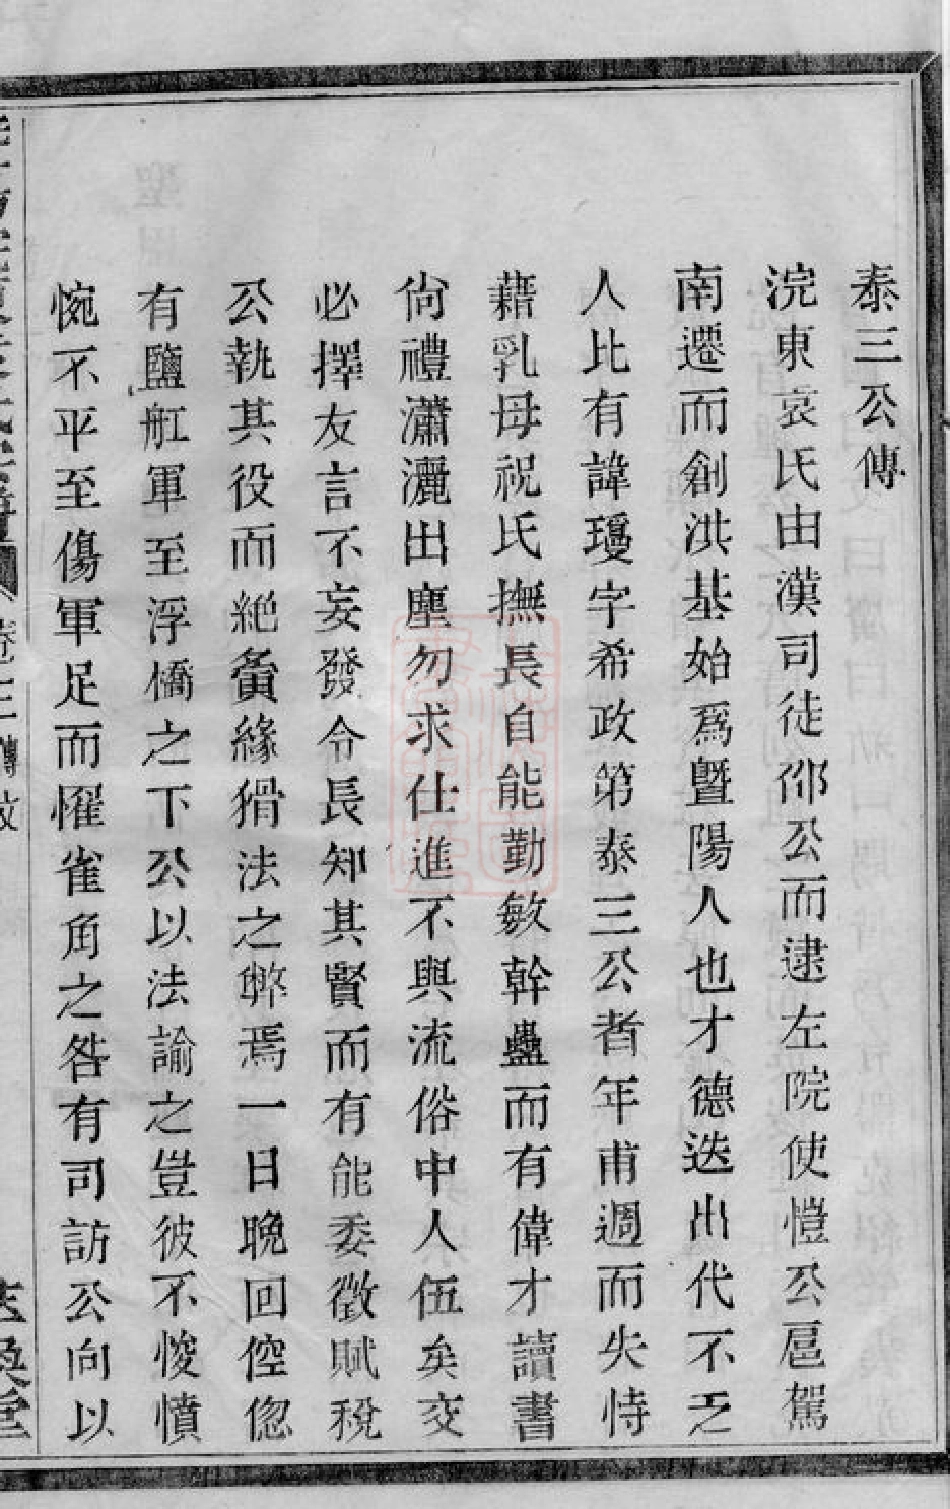 泰三公傳
浣東袁氏由漢司徒邵公而逮左院使愷公扈駕
南遷而創洪基始爲暨陽人也才德迭出代不乏
人比有諱瓊字希政第泰三公者年甫週而失恃
藉乳母祝氏撫長自能勤敏幹蠱而有偉才讀書
尙禮瀟灑出塵勿求仕進不與流俗中人伍矣交
必擇友言不妄發令長知其賢而有能委徵賦稅
公執其役而絕夤緣猾法之弊焉一日晚回倥偬
有鹽舡軍至浮橋之下公以法諭之豈彼不悛憤
惋不平至傷軍足而懼雀角之咎有司訪公向以